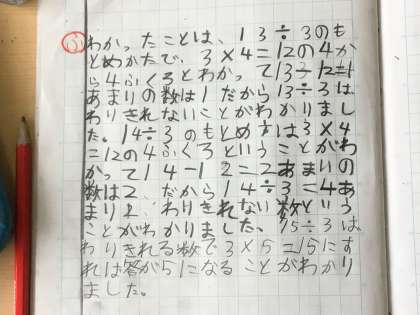 ふ わかったことは、13÷3のも
とめかたで、3×4=12の4か
ら4ふくろとわかって13-12=1
あまりの数は1だから13÷3は
わりきれないことがわかりまし
た。14÷3のもとめすは3×4
=12の4ふくろということがわ
かって14-12=2あまいの
数は2、だから14÷3=4あ
まり2、わりきれない数という
ことがわかりました。15÷3は
わりきれる数で3×5=15にす
れは答が5になることがわかり
ました。